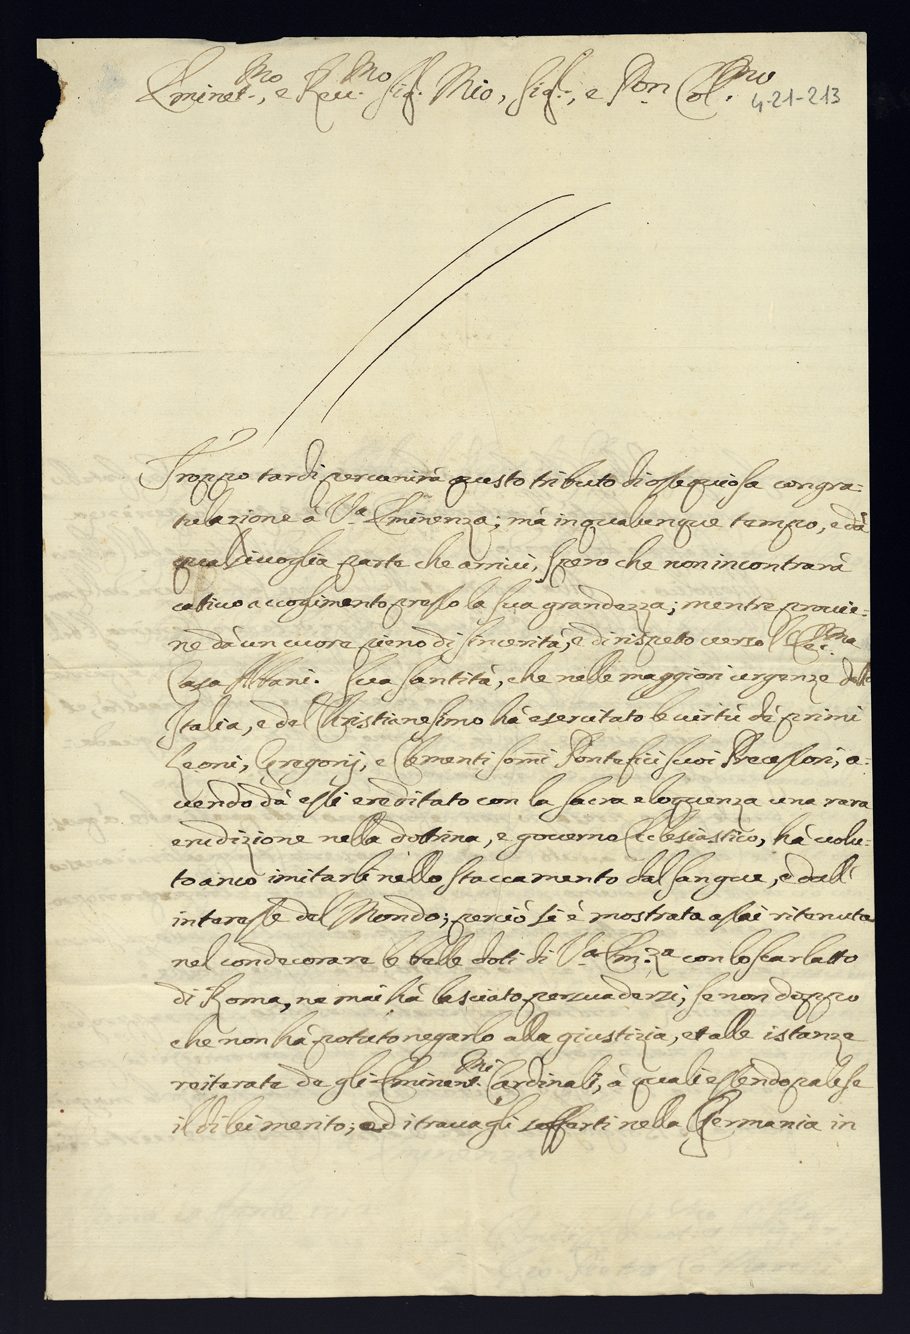 Eminen.mo, e Reu.mo Sig.r Mio, Sig.r, e Pron Col.mo
4-21-213
Troppo tardi peruenirà questo tributo di ossequiosa congra-
tulazione à V.a Eminenza; mà in qualunque tempo, e dà
qualsiuoglia parte che arriui, spero che non incontrarà
catiuo accoglimento presso la sua grandezza; mentre prouie-
ne dà un cuore pieno di sincerità, e di rispetto uerso l'Ecc.ma
Casa Albani. Sua Santità, che nelle maggiori urgenze dell'
Italia, e del Christianesimo hà esercitato le uirtù dè primi
Leoni, Gregorij, e Clementi som̄i Pontefici suoi Precessori, a-
uendo dà essi ereditato con la sacra eloquenza una rara
erudizione nella dottrina, e gouerno Ecclesiastico, hà uolu-
to anco imitarli nello staccamento dal sangue, e dall'
interesse del Mondo; perciò si è mostrata assai ritenuta
nel condecorare le belle doti di V.a Em.za con lo scarlatto
di Roma, ne mai hà lasciato persuadersi, se non doppo
che non hà potuto negarlo alla giustizia, et alle istanze
reiterate de gli Eminent.mi Cardinali, à quali essendo palese
il di lei merito; ed i trauagli sofferti nella Germania in